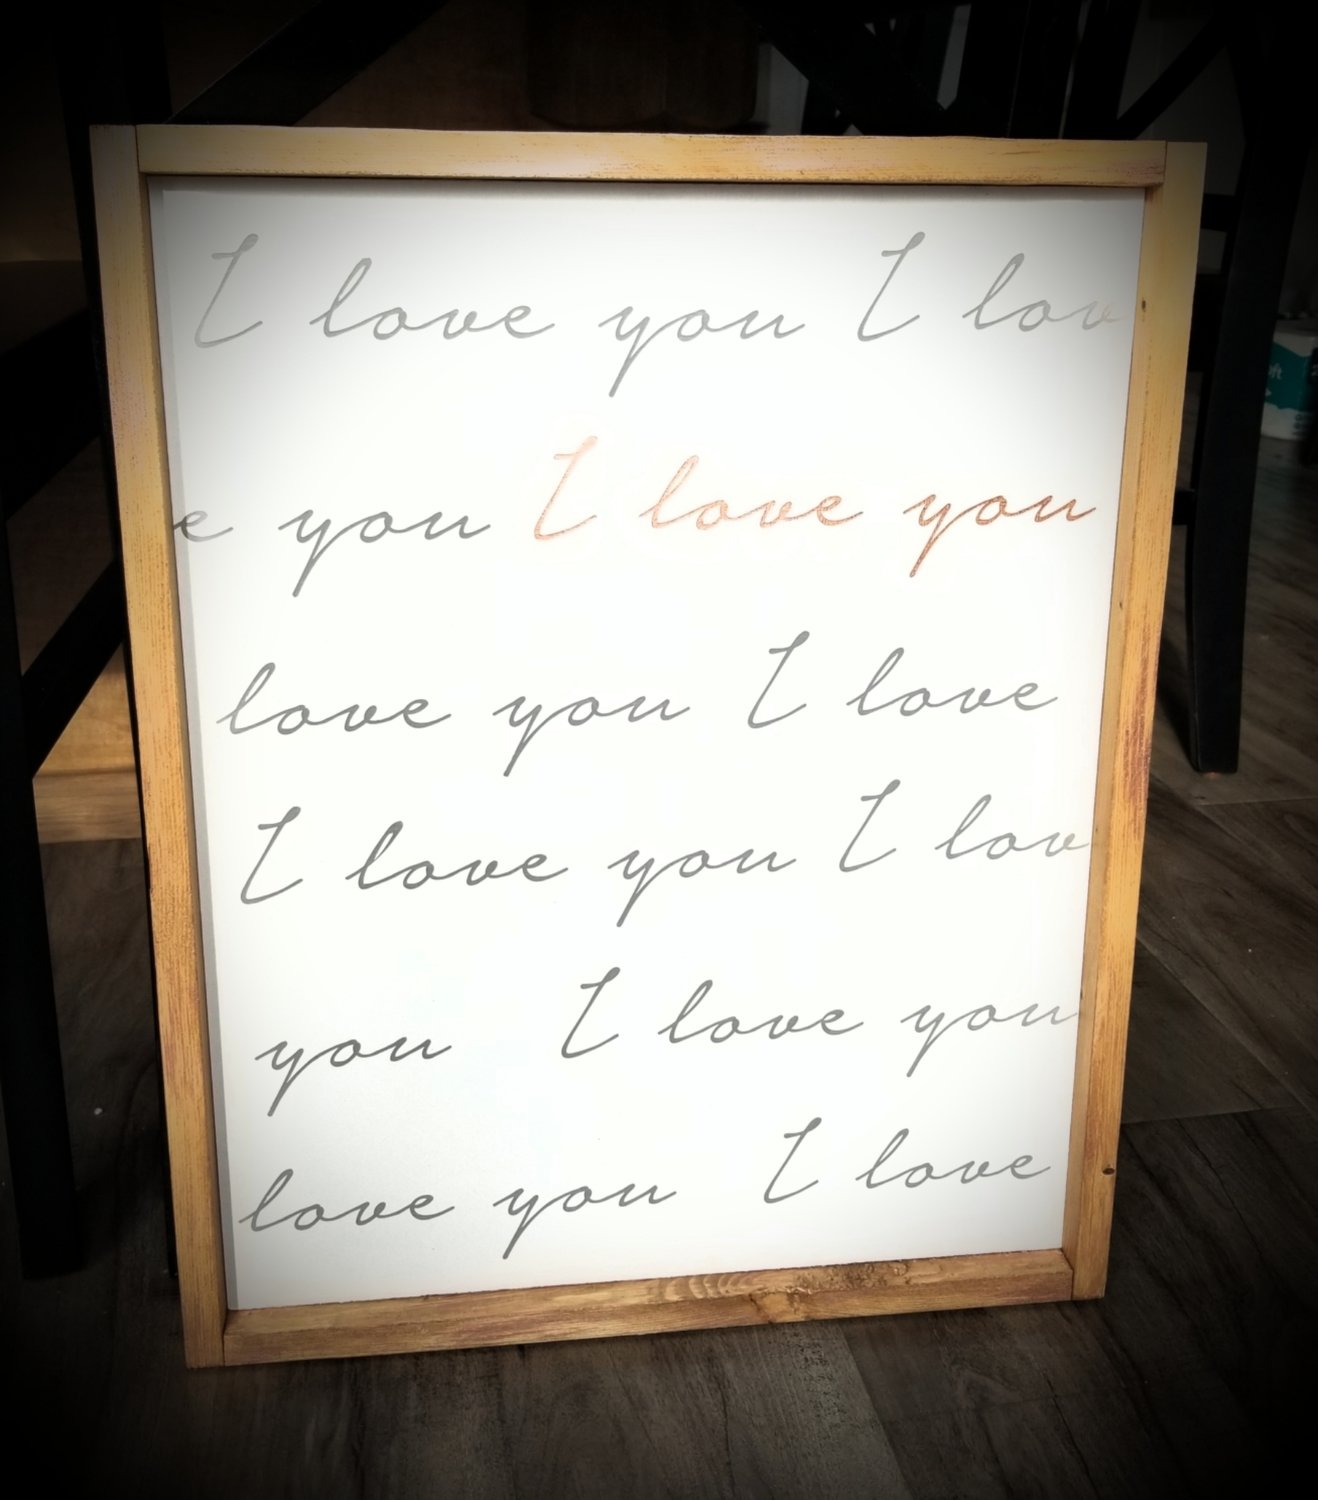 I love you I lov
e you I love you
love you I love
I love you I lov
you I love you
love you I love